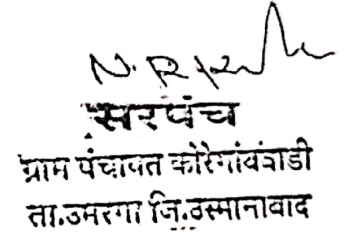 सरपंच
ग्राम पंचायत कोरेगांवंवाडी
ता.उमरगा जि.उस्मानाबाद